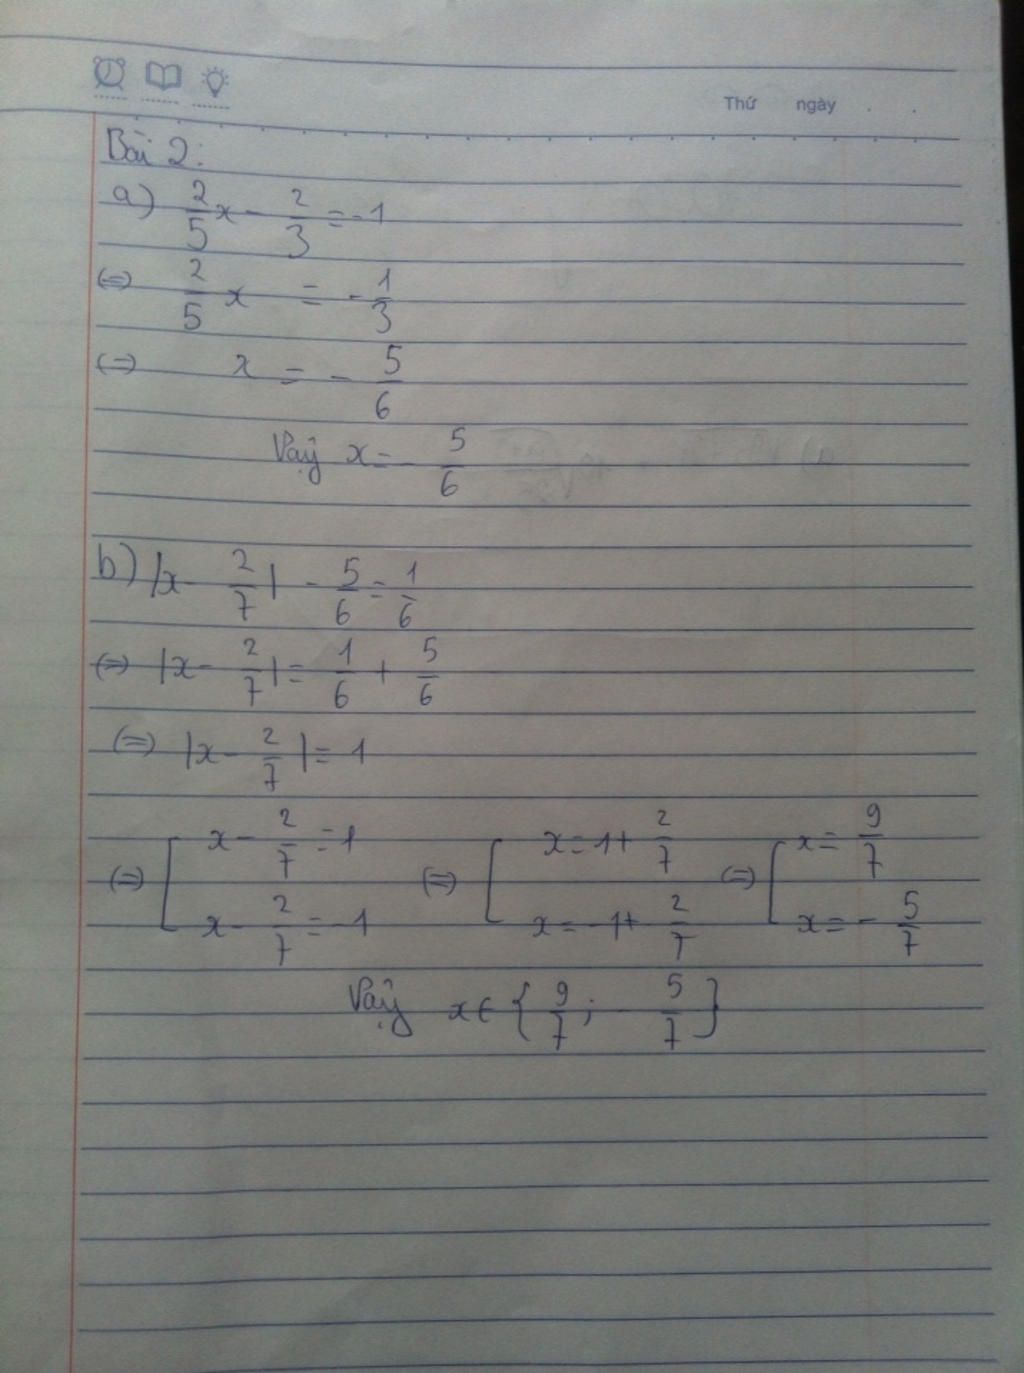 Thứ ngày
Bài 2:
a) 2/5 x - 2/3 = -1
(=) 2/5 x = - 1/3
(=) x = - 5/6
Vậy x = - 5/6
b) |x - 2/7| - 5/6 = 1/6
(=) |x - 2/7| = 1/6 + 5/6
(=) |x - 2/7| = 1
(=) [ x - 2/7 = 1 (=) [ x = 1 + 2/7 (=) [ x = 9/7
x - 2/7 = -1 x = -1 + 2/7 x = - 5/7
Vậy x ∈ { 9/7 ; - 5/7 }